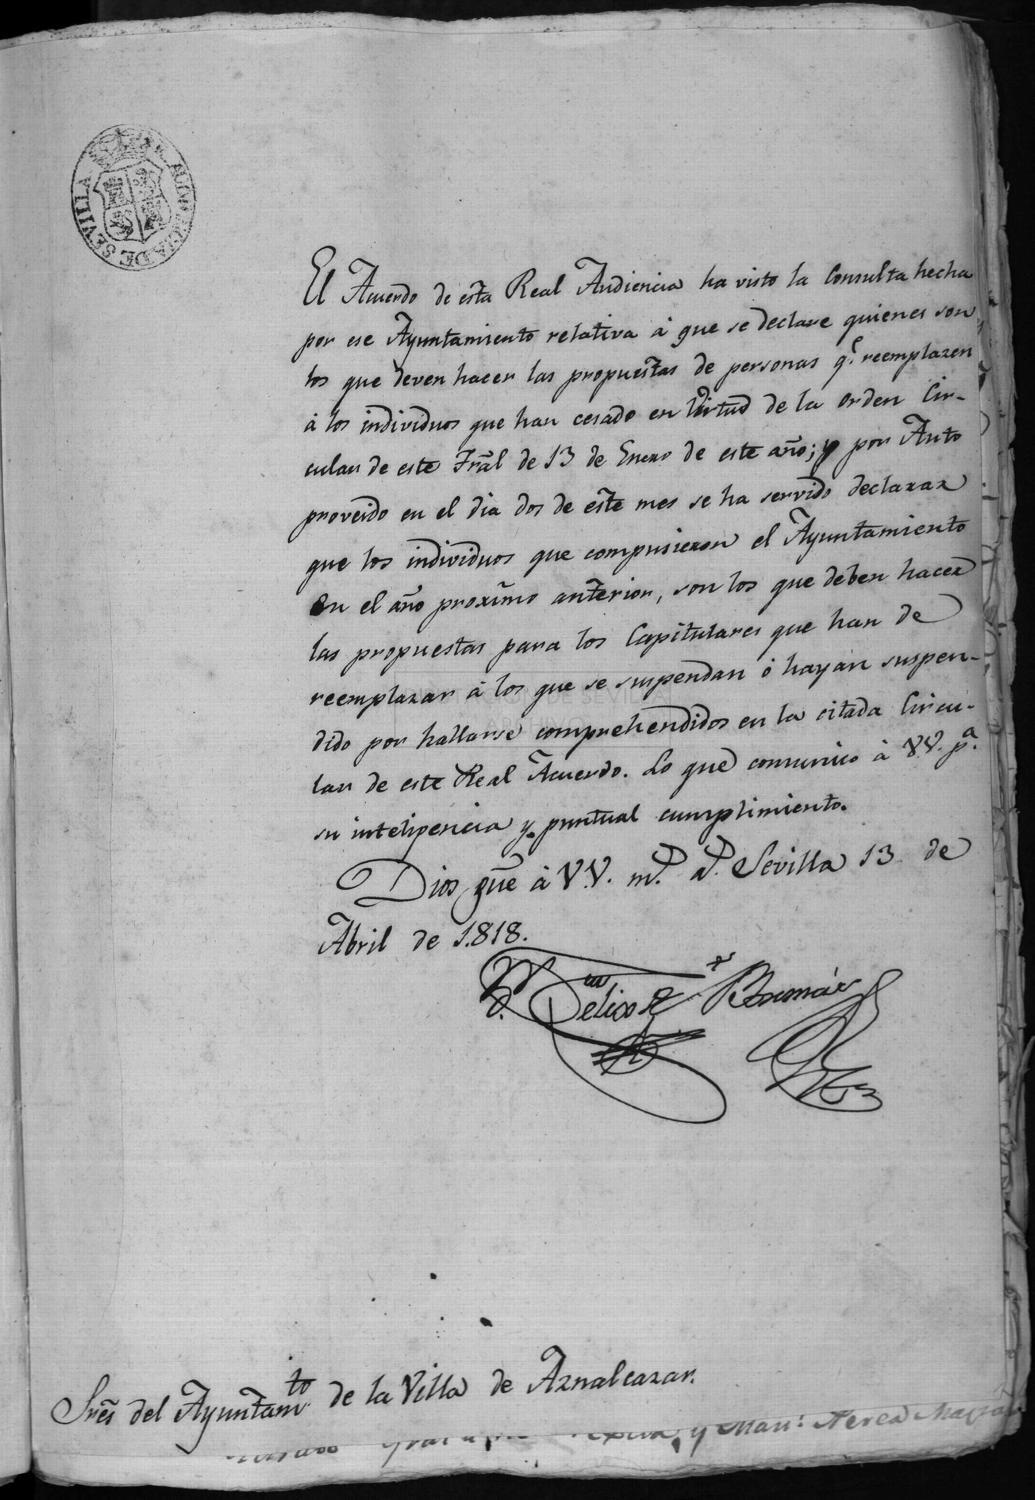 AUDIENCIA DE SEVILLA
El Acuerdo de esta Real Audiencia ha visto la Consulta hecha
por ese Ayuntamiento relativa á que se declare quienes son
los que deven hacer las propuestas de personas q.e reemplazen
á los individuos que han cesado en Virtud de la orden Cir-
cular de este Tral de 13 de Enero de este año; y por Auto
proveido en el dia dos de este mes se ha servido declarar
que los individuos que compusieron el Ayuntamiento
En el año proximo anterior, son los que deben hacer
las propuestas para los Capitulares que han de
reemplazar á los que se suspendan ó hayan suspen-
dido por hallarse comprehendidos en la citada Circu-
lar de este Real Acuerdo. Lo que comunico á VV. p.a
su inteligencia y puntual cumplimiento.
Dios gue á V.V. m.s a.s Sevilla 13 de
Abril de 1.818.
Sres del Ayuntam.to de la Villa de Aznalcazar.
y Man.l